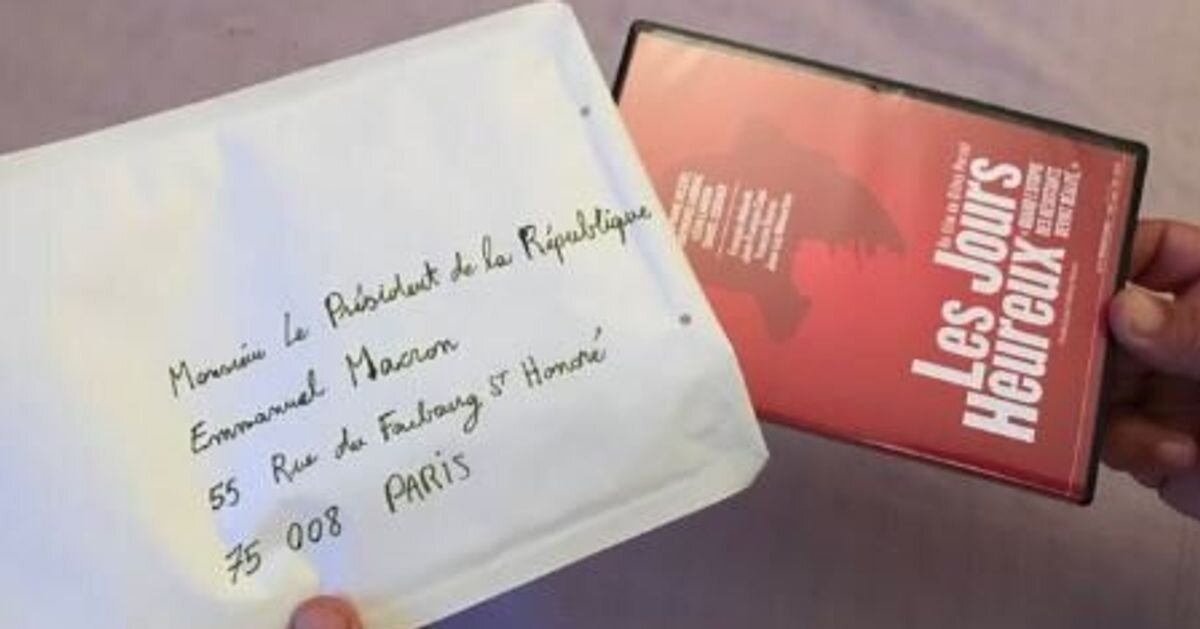 Monsieur Le Président de la République
Emmanuel Macron
55 Rue du Faubourg St Honoré
75 008 PARIS
Un film de Gilles Perret
Les Jours
Heureux
« QUAND L'UTOPIE
DES RÉSISTANTS
DEVINT RÉALITÉ. »